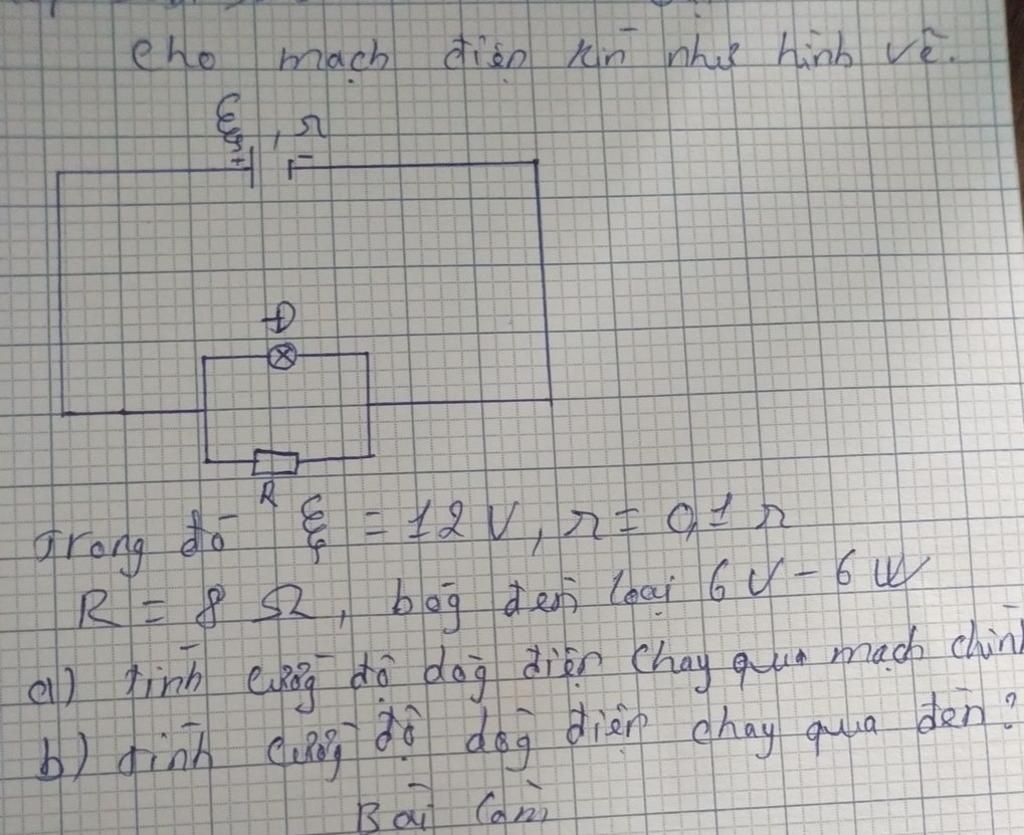 cho mạch điện kín như hình vẽ.
ξ, r
+ -
Đ
R
Trong đó ξ = 12 V, r = 0,1 Ω
R = 8 Ω, bóg đèn loại 6 V - 6 W
a) tính cườg độ dòg điện chạy qua mạch chính
b) tính cườg độ dòg điện chạy qua đèn?
Bài làm